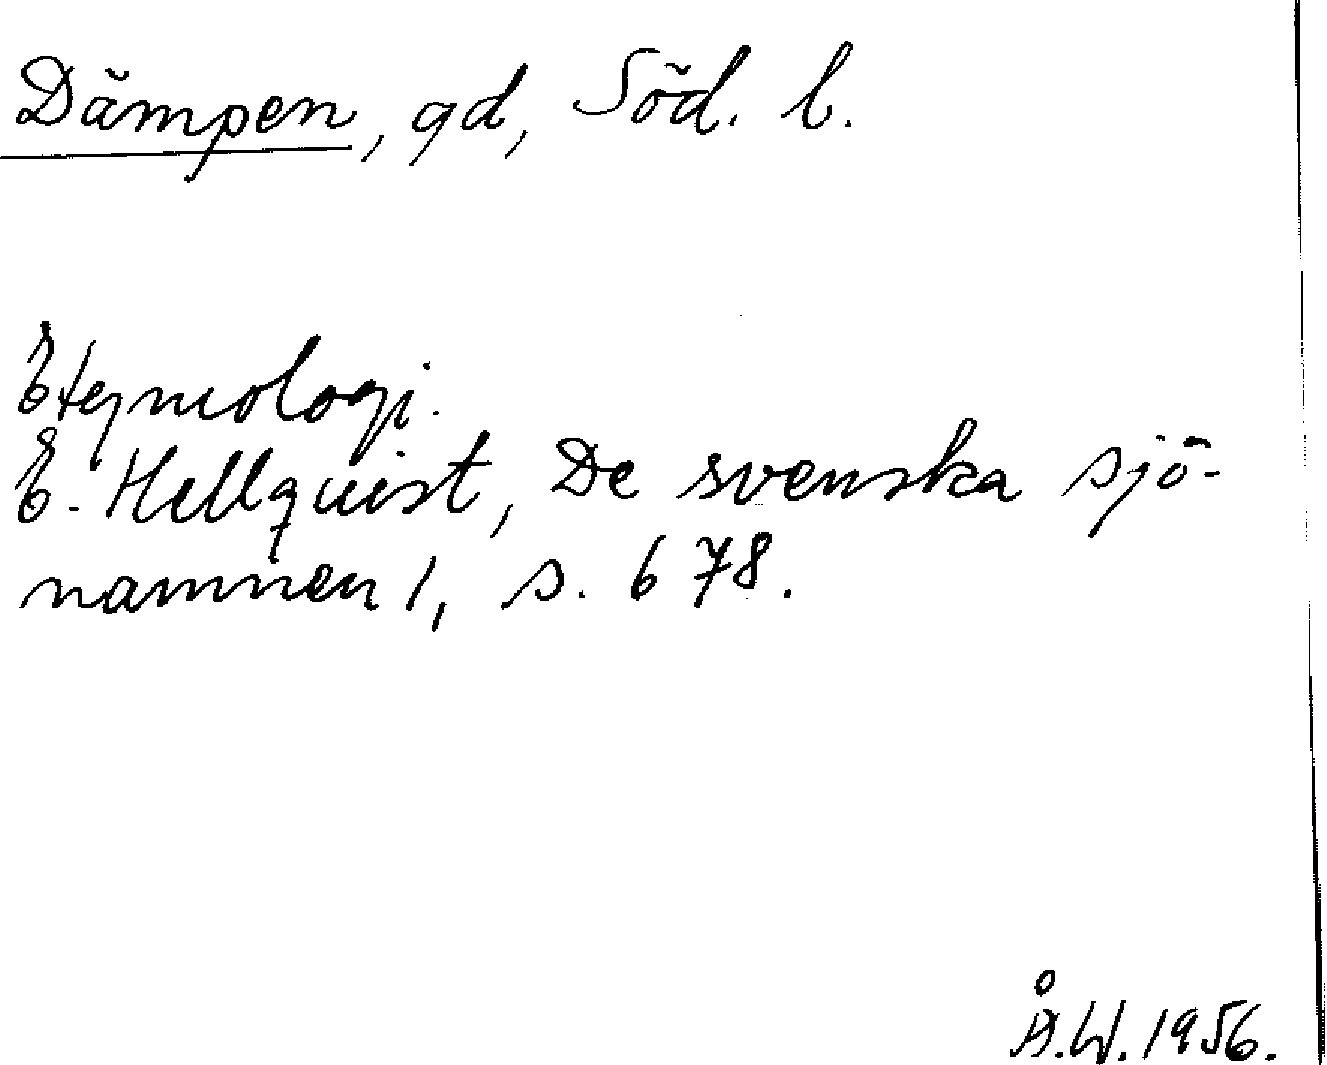 Dämpen, gd, Söd. l.
Etymologi.
E. Hellquist, De svenska sjö-
namnen 1, s. 678.
Å.W. 1956.